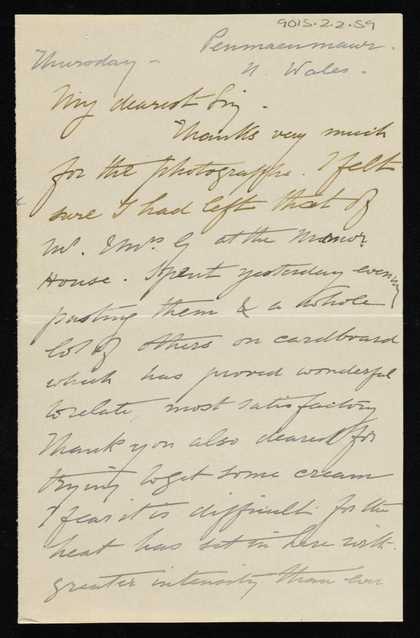 9015.2.2.59
Penmaenmawr.
Thursday - N. Wales.
My dearest
Thanks very much
for the photographs. I felt
sure I had left that of
Mr. & Mrs G at the Manor
House. Spent yesterday evening
pasting them & a whole
lot of others on cardboard
which has proved wonderful
to relate, most satisfactory
Thank you also dearest for
trying to get some cream
I fear it is difficult for the
heat has set in here with
greater intensity than ever